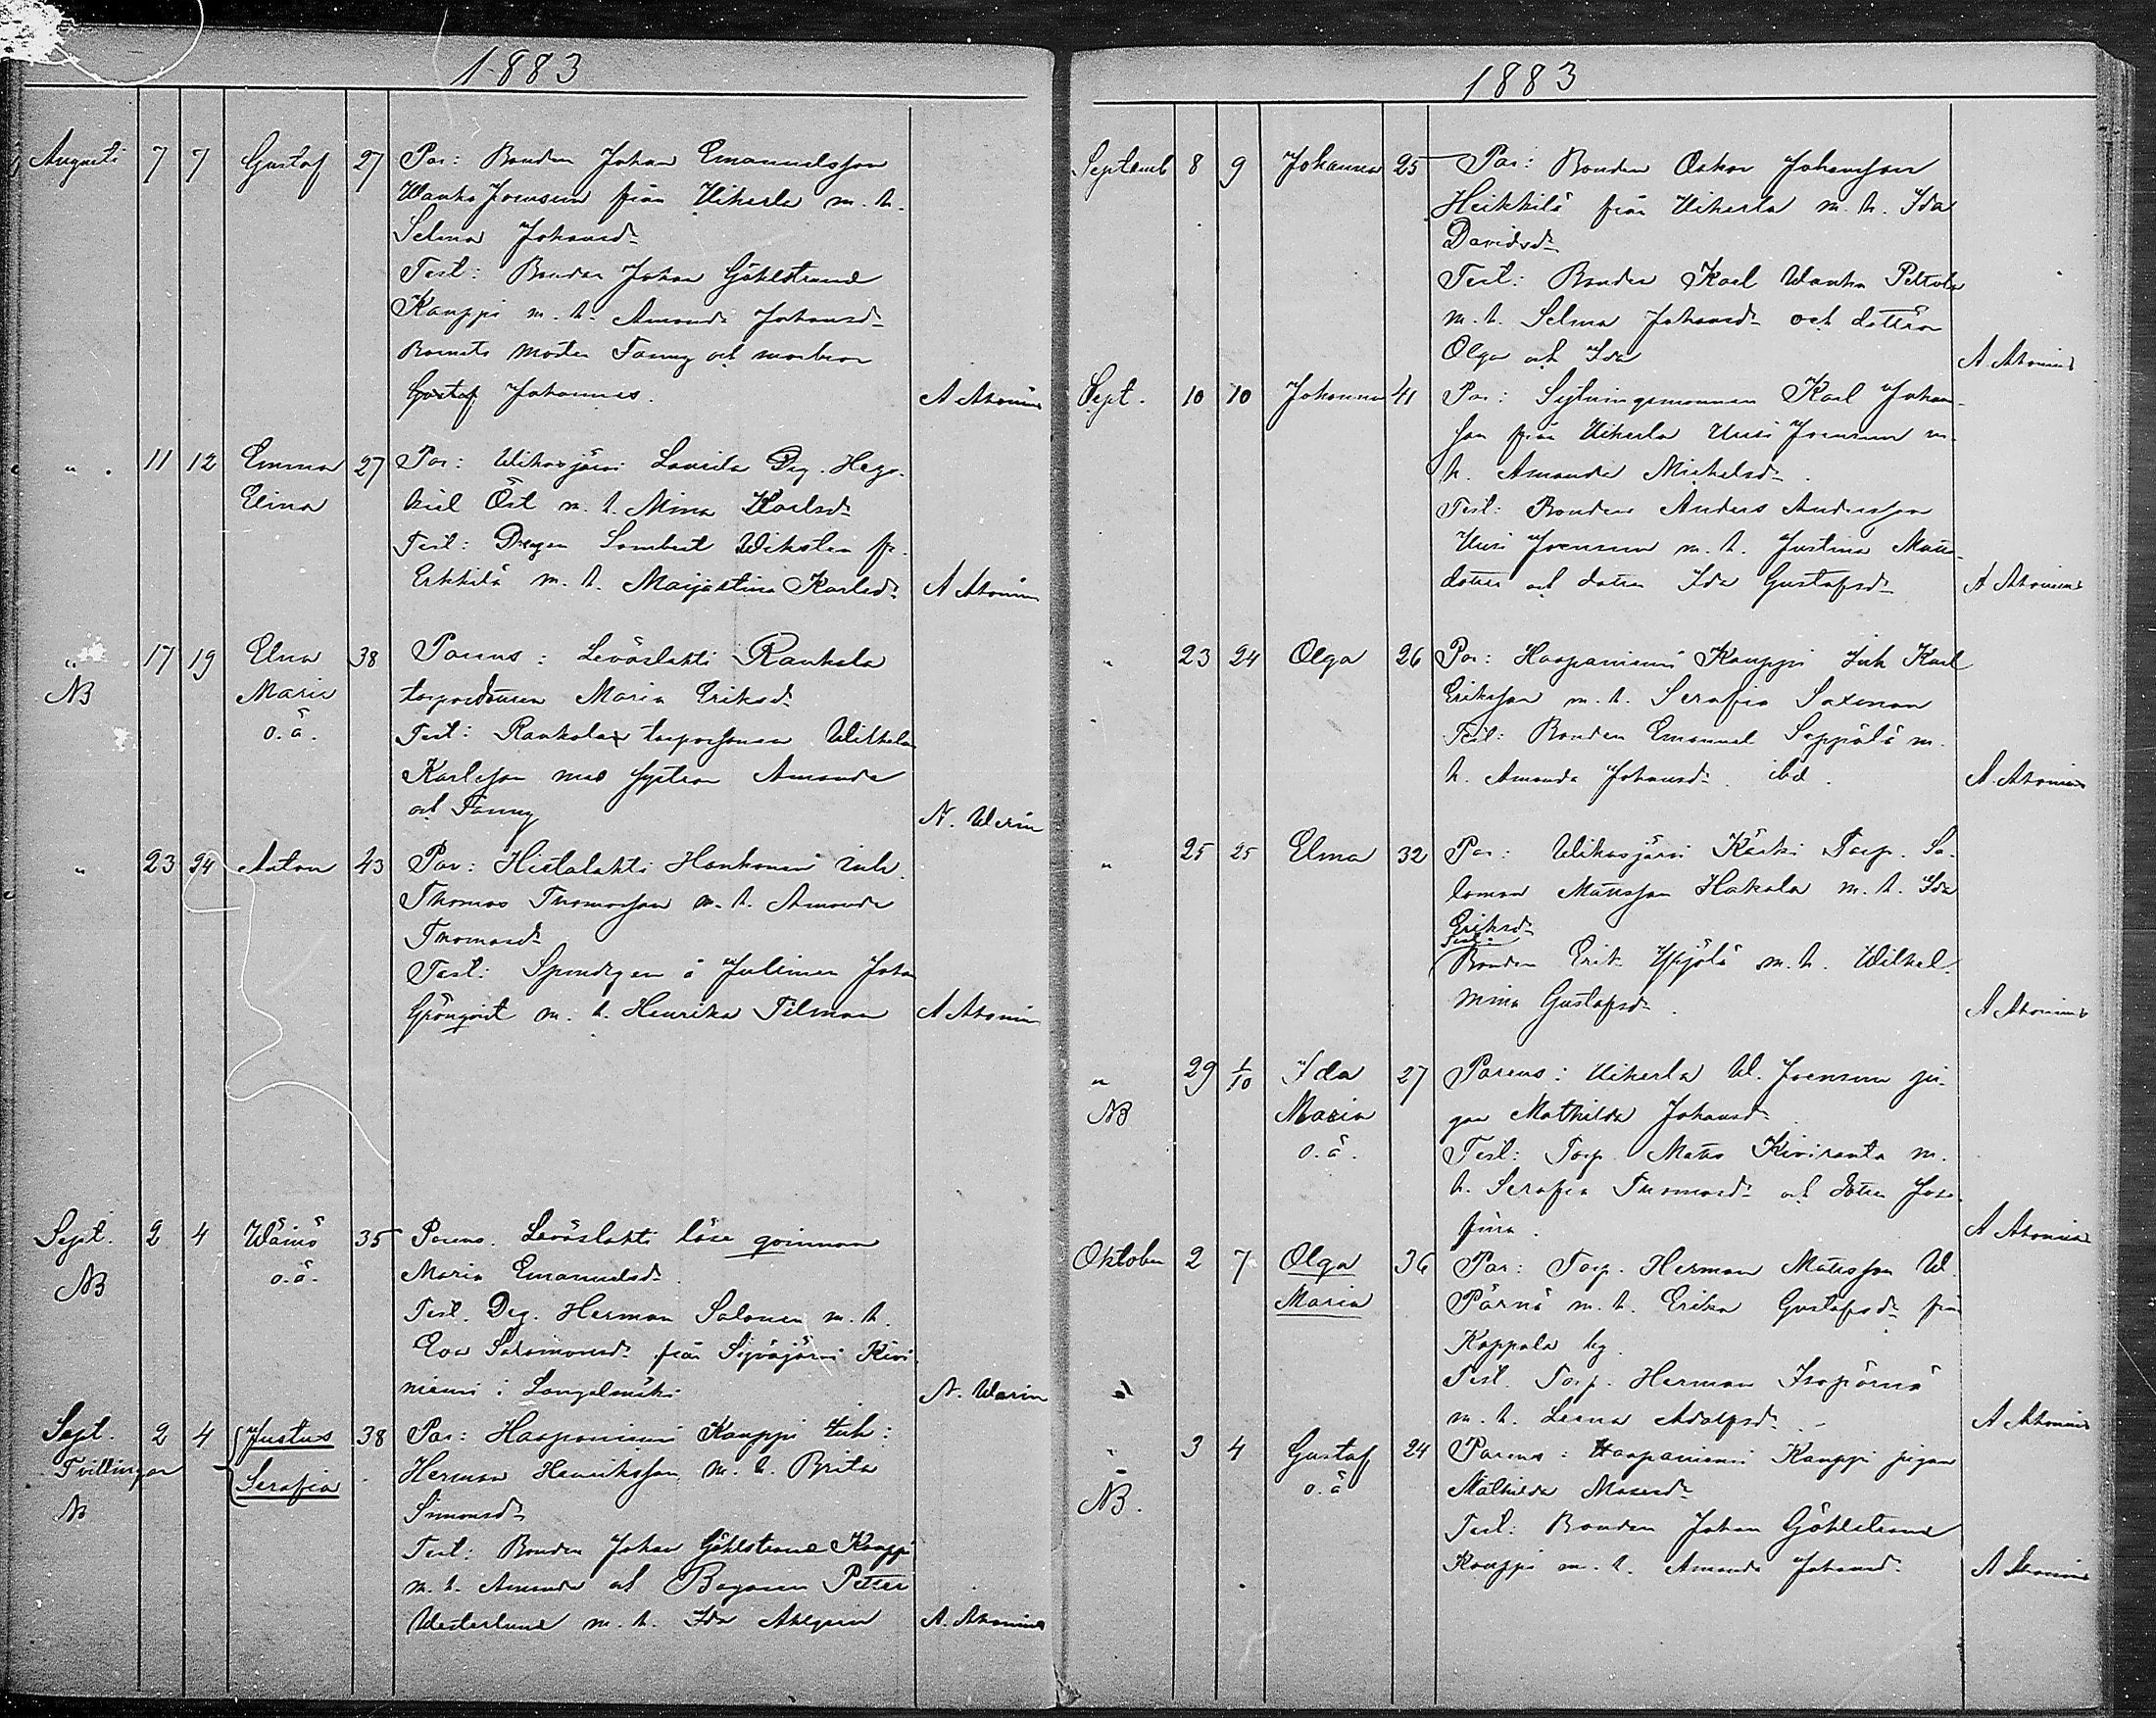 1883
Augusti 7 7 Gustaf 27 Par: Bonden Johan Emanuelsson
Wanha Joensuu från Uiherla m. h.
Selma Johansd.
Test: Bonden Johan Göhlstrand
Kauppi m. h. Amanda Johansd.
Barnets moster Fanny och morbror
Gustaf Johannes. A Ahonius
" 11 12 Emma 27 Par: Wihasjärvi Laurila Drg. Hese-
Elina kiel Öst m. h. Mina Karlsd.
Test: Drengen Lambert Wiksten fr.
Erkkilä m. h. Majastina Karlsd. A Ahonius
" 17 19 Elna 38 Parens: Leväslahti Rankala
NB Maria torpardottren Maria Eriksd.
o.ä. Test: Rankala torparsonen Wilhelm
Karlsson med systrar Amanda
och Fanny N. Warin
" 23 24 Anton 43 Par: Hietalahti Hankonen inh.
Thomas Thomasson m. h. Amanda
Thomasd.
Test: Spendigen å Julimen Johan
Grönqvist m. h. Henrika Tilman A Ahonius
Sept. 2 4 Wäinö 35 Parens. Leväslahti lösa qvinnan
NB o.ä. Maria Emanuelsd.
Test. Drg. Herman Salonen m. h.
Eva Salomonsd. från Sipsäjärvi Kivi-
niemi i Längelmäki N. Warin
Sept. 2 4 Justus 38 Par: Haapaniemi Kauppi Inh:
Tvillingar Serafia Herman Henriksson m. h. Brita
NB Simonsd.
Test: Bonden Johan Göhlstrand Kauppi
m. h. Amanda och Bagaren Petter
Westerlund m. h. Ida Ahlgren A. Ahonius
1883
Septemb 8 9 Johanna 25 Par: Bonden Oskar Johansson
Heikkilä från Uiherla m. h. Ida
Davidsd.
Test: Bonden Karl Wanha Pettula
m. h. Selma Johansd. och döttrar
Olga och Ida A Ahonius
Sept. 10 10 Johanna 41 Par: Sytningsmannen Karl Johans-
son från Uiherla Uusi Joensuu m.
h. Amanda Michelsd.
Test: Bonden Anders Andersson
Uusi Joensuu m. h. Justina Matts-
dotter och dottren Ida Gustafsd. A Ahonius
" 23 24 Olga 26 Par: Haapaniemi Kauppi Inh Karl
Eriksson m. h. Serafia Saxman
Test: Bonden Emanuel Seppälä m.
h. Amanda Johansd. ibd. A. Ahonius
" 25 25 Elma 32 Par: Wihasjärvi Kärki Torp. Sa-
lomon Mattsson Hakala m. h. Ida
Eriksd.
Test:
Bonden Erik Yhjölä m. h. Wilhel-
mina Gustafsd. A Ahonius
" 29 1/10 Ida 27 Parens: Uiherla W. Joensuu pi-
NB Maria gan Mathilda Johansd.
o.ä. Test: Torp. Matts Kiviranta m.
h. Serafia Thomasd. och dotter Jose-
fina. A Ahonius
Oktober 2 7 Olga 36 Par: Torp. Herman Mattsson W.
Maria Pärnä m. h. Erika Gustafsd. från
Koppala by.
Test. Torp. Herman Isopärnä
m. h. Leena Adolfsd. A Ahonius
" 3 4 Gustaf 24 Parens: Haapaniemi Kauppi pigan
NB. o.ä Mathilda Mosesd.
Test: Bonden Johan Göhlstrand
Kauppi m. h. Amanda Johansd. A Ahonius